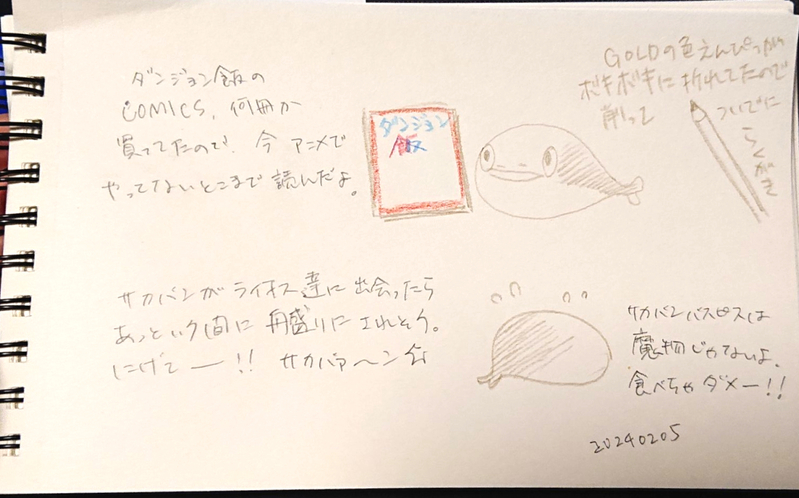 ダンジョン飯の
COMICS、何冊か
買ってたので、今アニメで
やってないとこまで読んだよ。
ダンジョン
飯
GOLDの色えんぴつが
ボキボキに折れてたので
削って
ついでに
らくがき
サカバンがライオス達に出会ったら
あっという間に舟盛りにされそう。
にげてー!! サカバァ〜ン
サカバンバスピスは
魔物じゃないよ。
食べちゃダメー!!
20240205